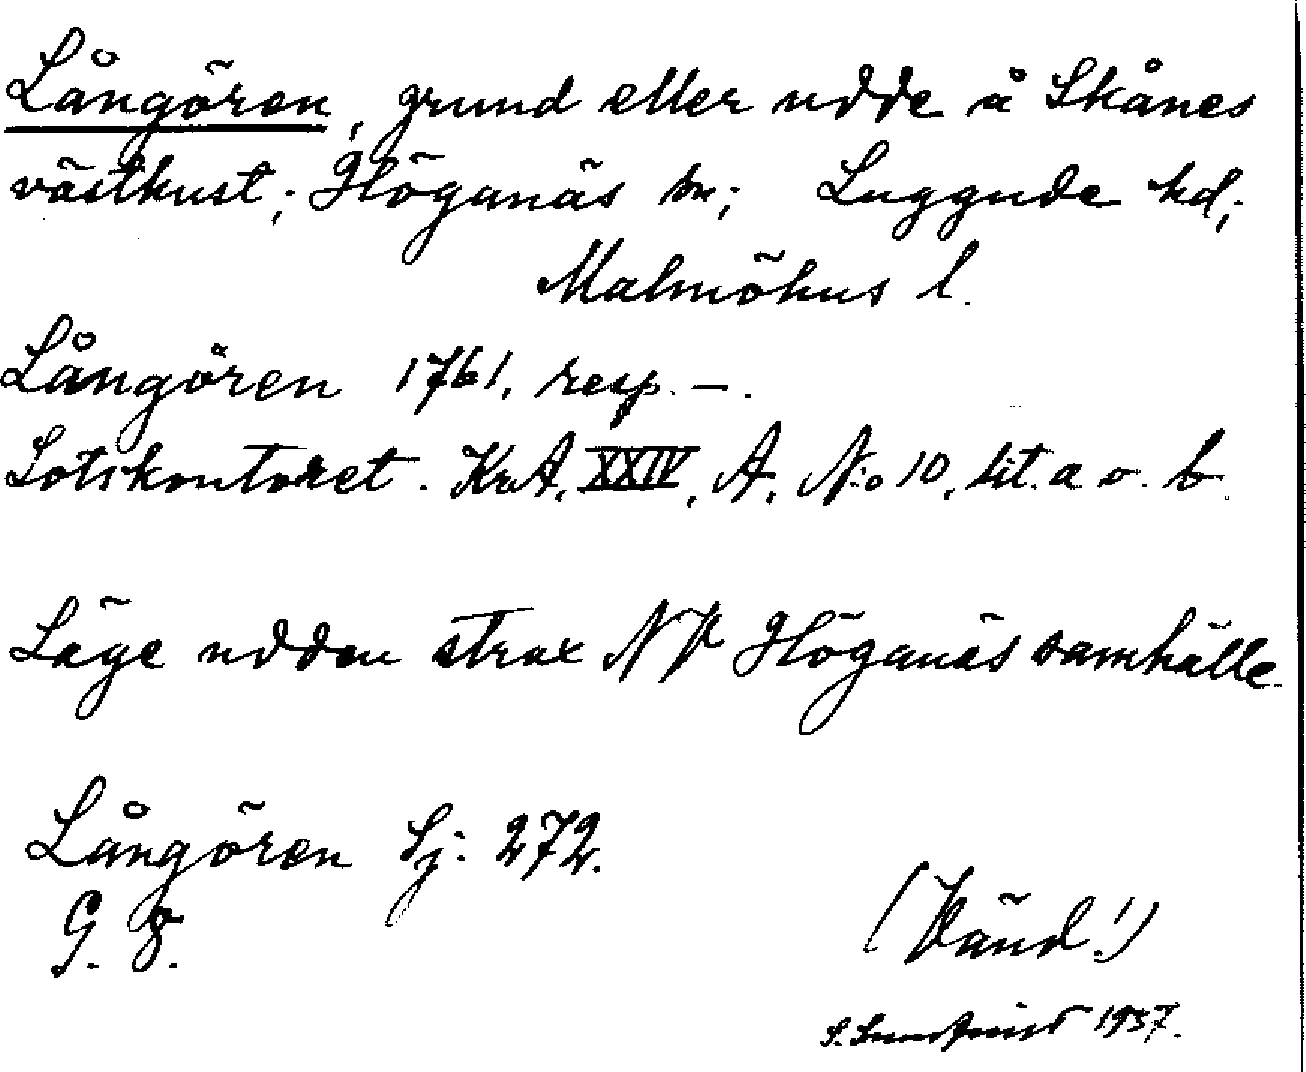 Långören, grund eller udde å Skånes
västkust; Höganäs sn; Luggude hd;
Malmöhus l.
Långören 1761, resp. –.
Lotskontoret. KrA, XXIV, A, No 10, lit. a o. b.
Läge udden strax NV Höganäs samhälle.
Långören Sj: 272.
(Vänd!)
1937.